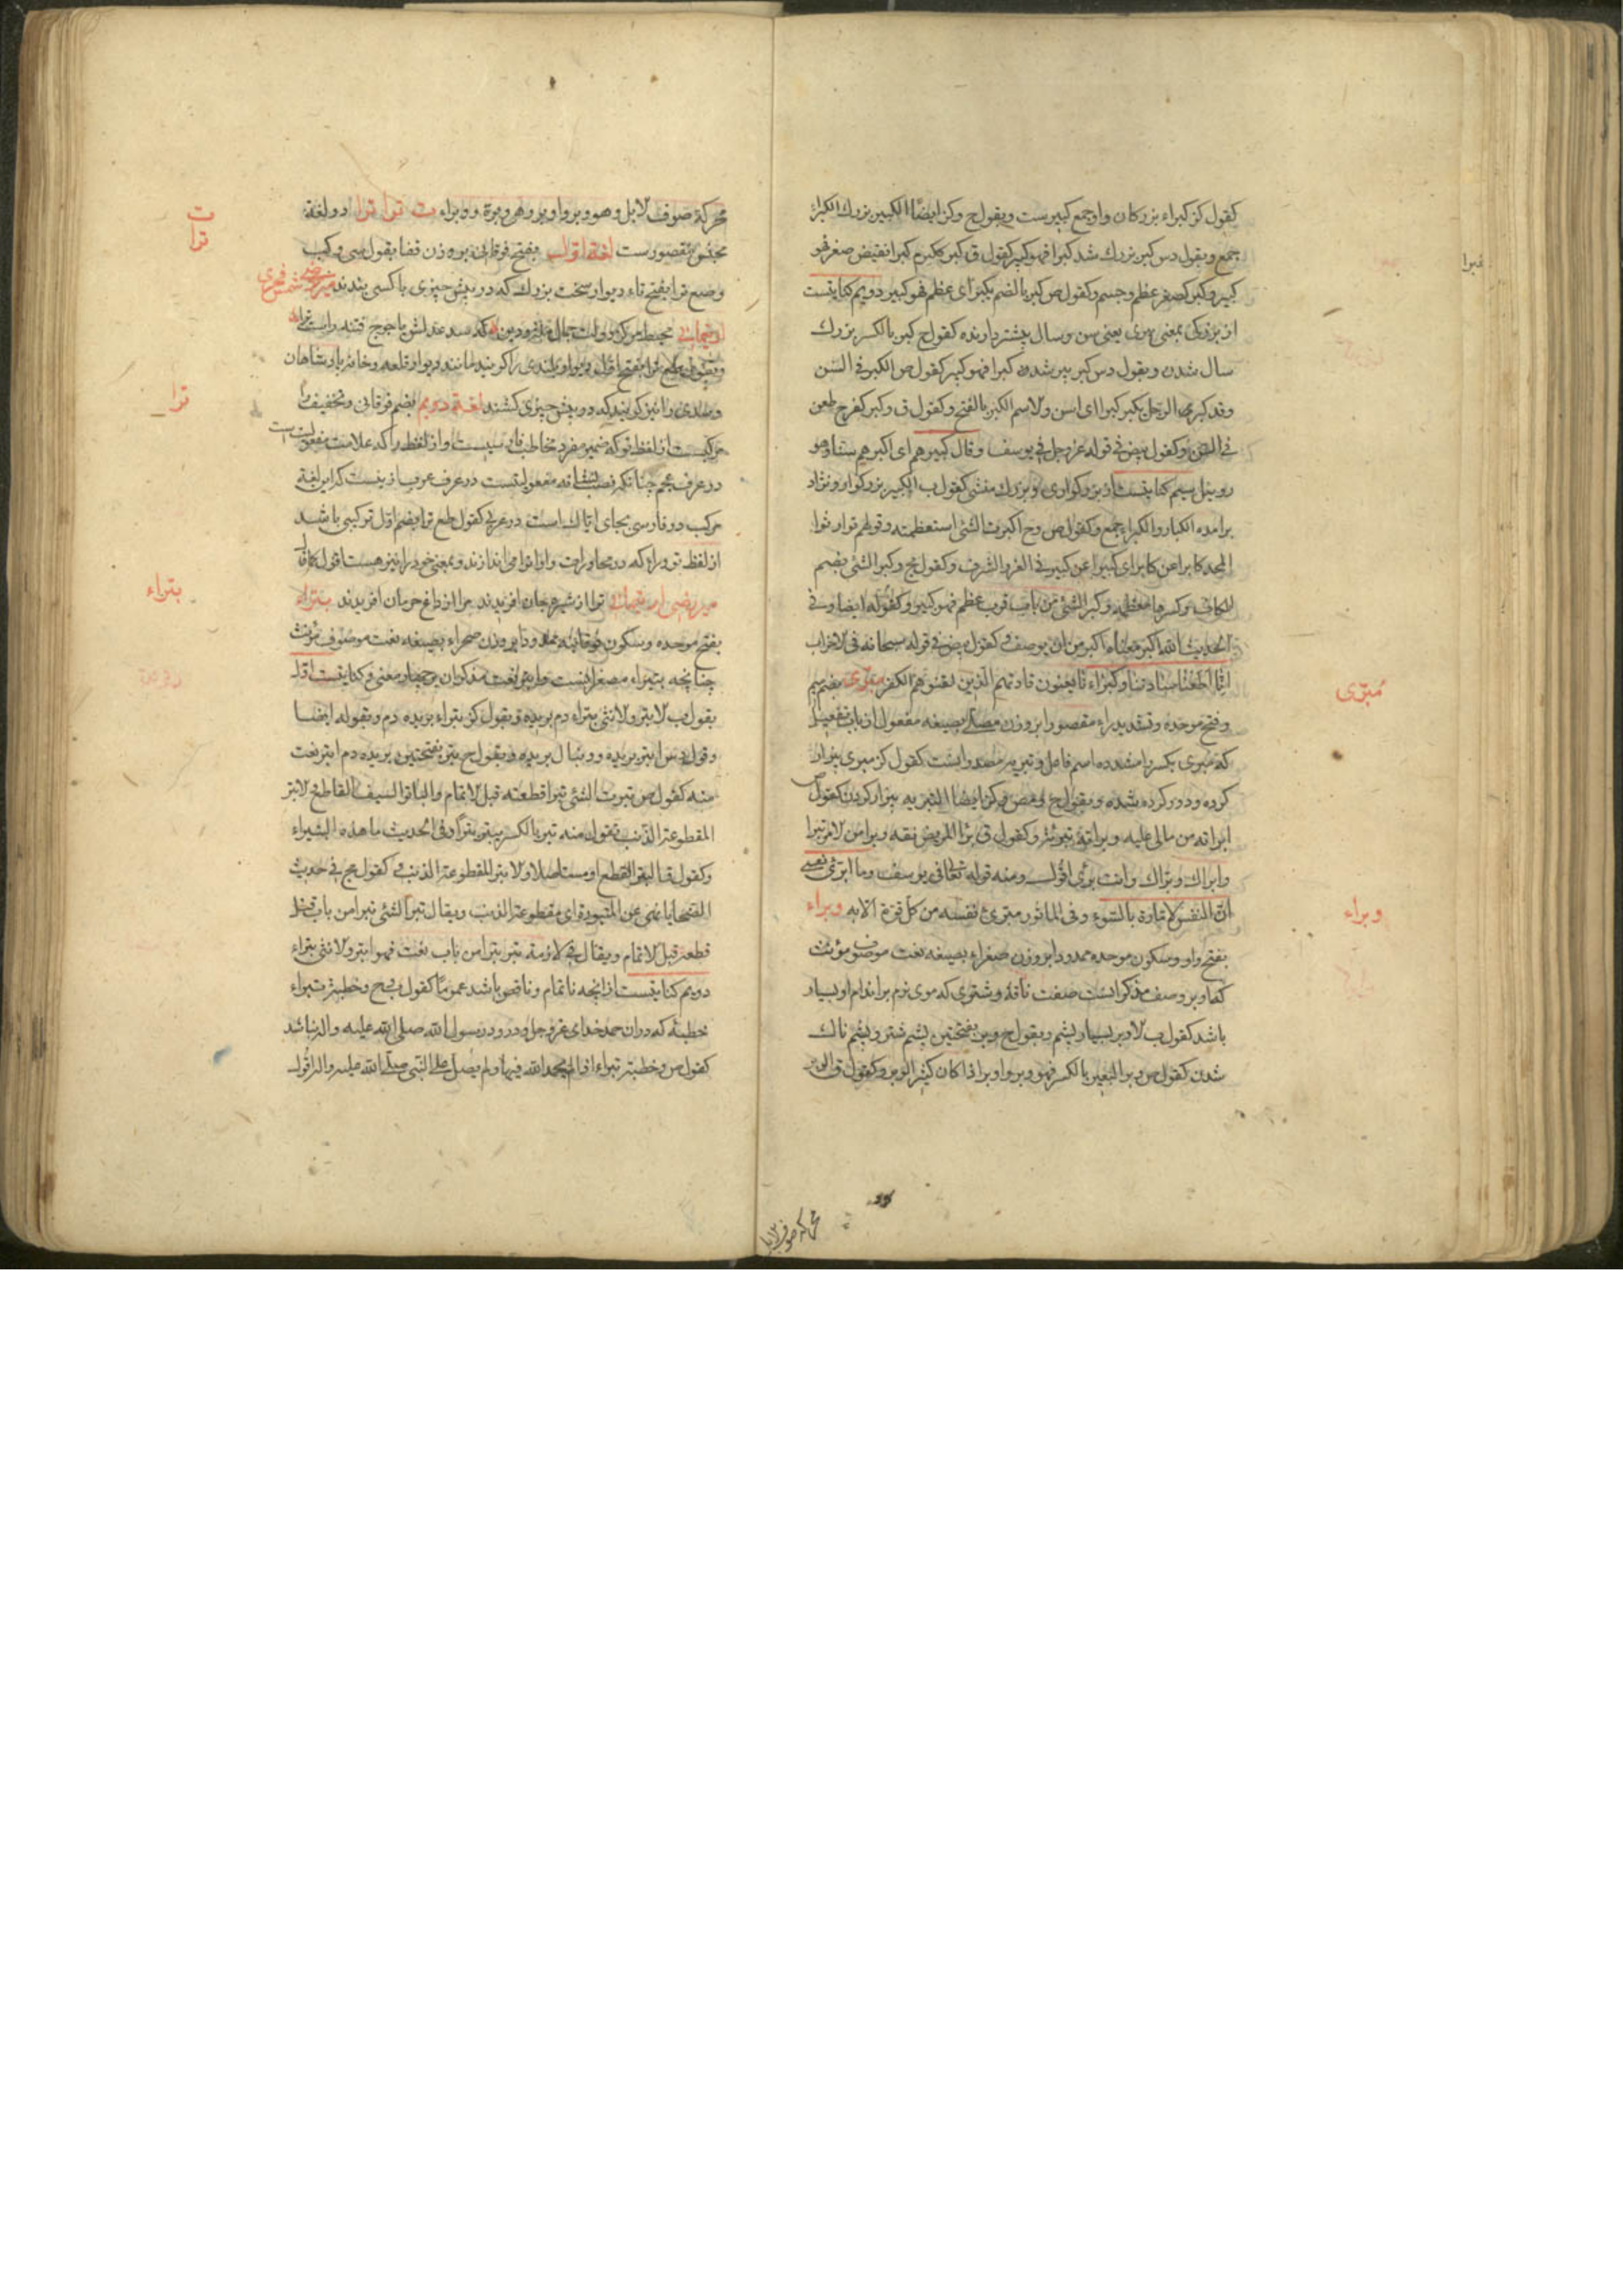 كقول كز كبراء بزركان واو جمع كبيرست وبقول ح وكز ايضًا الكبير بزرك الكبراء
جمع وبقول دس كبر بزرك شد كبرا فهو كبير كقول ق كبر يكبر كبرا نقيض صغر فهو
كبير وكبر كصغر عظم وجسم وكقول ص كبر بالضم يكبر اى عظم فهو كبير دويم كنايتست
از بزركى بمعنى پيرى يعنى سن وسال بيشتر دارنده كقول ح كبر بالكسر بزرك
سال شدن وبقول دس كبر پير شدن كبرا فهو كبير كقول ص الكبر فى السن
وقد كبر الرجل يكبر كبرا اى اسن والاسم الكبر بالفتح وكقول ق وكبر كفرح طعن
فى السن وكقول بيض فى قوله عز وجل فى يوسف وقال كبيرهم اى اكبرهم سنا وهو
روبيل سيم كنايتست از بزركوارى وبزرك منشى كقول ب الكبير بزركوار ونژاد
برامده الكبار والكبراء جمع وكقول ص وح اكبرت الشئ استعظمته وقولهم توارثوا
المجد كابرا عن كابر اى كبيرا عن كبير فى العز والشرف وكقول مج وكبر الشئ بضم
الكاف وكسرها معظمه وكبر الشئ من باب قرب عظم فهو كبير وكقوله ايضا وفى
الحديث الله اكبر معناه اكبر من ان يوصف وكقول بيض فى قوله سبحانه فى الاحزاب
انا اطعنا سادتنا وكبراءنا يعنون قادتهم الذين لقنوهم الكفر مبرّى بضم ميم
وفتح موحده وتشديد راء مقصورا بر وزن مصلى بصيغه مفعول از باب تفعيل
كه مبرى بكسر را مشدده اسم فاعل وتبريه مصدر اوست كقول كز مبرى بيزار
كرده ودور كرده شده وبقول ح وكز ايضا التبريه بيزار كردن كقول ص
ابراته من مالى عليه وبراته تبرئة وكقول ق برا المريض نقه وبرا من الامر تبرا
وابراك وبراك وانت برئ اقول ومنه قوله تعالى فى يوسف وما ابرئ نفسى
ان النفس لامارة بالسوء وفى الماثور مبرئ نفسه من كل قزة الابه وبراء
بفتح واو وسكون موحده ممدودا بر وزن صغراء بصيغه نعت موصوف مؤنث
كه اوبر وصف مذكر اوست صفت ناقه وشترى كه موى نرم بر اندام او بسيار
باشد كقول ب الاوبر بسيار پشم وبقول ح وبر بفتحتين پشم شتر وپشم ناك
شدن كقول ص وبر البعير بالكسر فهو وبر واوبر اذا كان كثير الوبر وكقول ق الوبر
مبرّى
وبراء
محركة صوف الا
محركة صوف الابل وهو وبر واوبر وهى وبرة ووبراء ت ترا ترا دو لغة
مجنس مقصورست لغة اول بفتح فوقانى بر وزن قفا بقول سى وكب
وضع ترا بفتح تاء ديوار سخت بزرك كه در پيش چيزى يا كسى بندند شمس فخرى
محيط مركز دولت جمال دين كه سد عدلش ياجوج فتنه راست ترا
وبقول طع ترا بفتح اول ديوار بلندى را كويند مانند ديوار قلعه وخانه پادشاهان
وسدى را نيز كويند كه در پيش چيزى كشند لغة دويم بضم فوقانى وتخفيف را
مركبست از لفظ تو كه ضمير مفرد مخاطب فارسيست واز لفظ را كه علامت مفعولست
در عرف عجم چنانكه نصب نشانه مفعولتست در عرف عرب ازينست كه اين لغة
مركب در فارسى بجاى اياك است در عربى كقول طع ترا بضم اول تركيبى باشد
از لفظ تو وراء كه در محاورات واو او را مى اندازند وبمعنى خود را نيز هست
ترا از شيره جان افريدند مرا از داغ حرمان افريدند بتراء
بفتح موحده وسكون فوقانيه ممدودا بر وزن صحراء بصيغه نعت موصوف مؤنث
چنانچه بتيراء مصغر اوست وابتر نعت مذكر ان بر چهار معنى وكنايتست اول
بقول ب الابتر والانثى بتراء دم بريده وبقول كز بتراء بريده دم وبقوله ايضا
وقول دس ابتر بريده ودنبال بريده وبقول ح بتر بفتحتين بريده دم ابتر نعت
منه كقول ص بترت الشئ بترا قطعته قبل الاتمام والباتر السيف القاطع الابتر
المقطوعة الذنب تقول منه بتر بالكسر يبتر بترا وفى الحديث ما هذه البتيراء
وكقول ق البتر القطع او مستاصلا والابتر المقطوعة الذنب وكقول مج فى حديث
الضحايا نهى عن المبتورة اى مقطوعة الذنب ويقال بتر الشئ بترا من باب قتل
قطعه قبل الاتمام ويقال فى لازمه بتر بترا من باب تعب فهو ابتر والانثى بتراء
دويم كنايتست از انچه ناتمام وناقص باشد عموما كقول ق ح وخطبة بتراء
خطبئه كه در ان حمد خداى عز وجل ودرود رسول الله صلى الله عليه واله نباشد
كقول ص وخطبة بتراء اذا لم يحمد الله فيها ولم يصل على النبى صلى الله عليه واله اقول
ت
ترا
ترا
بتراء